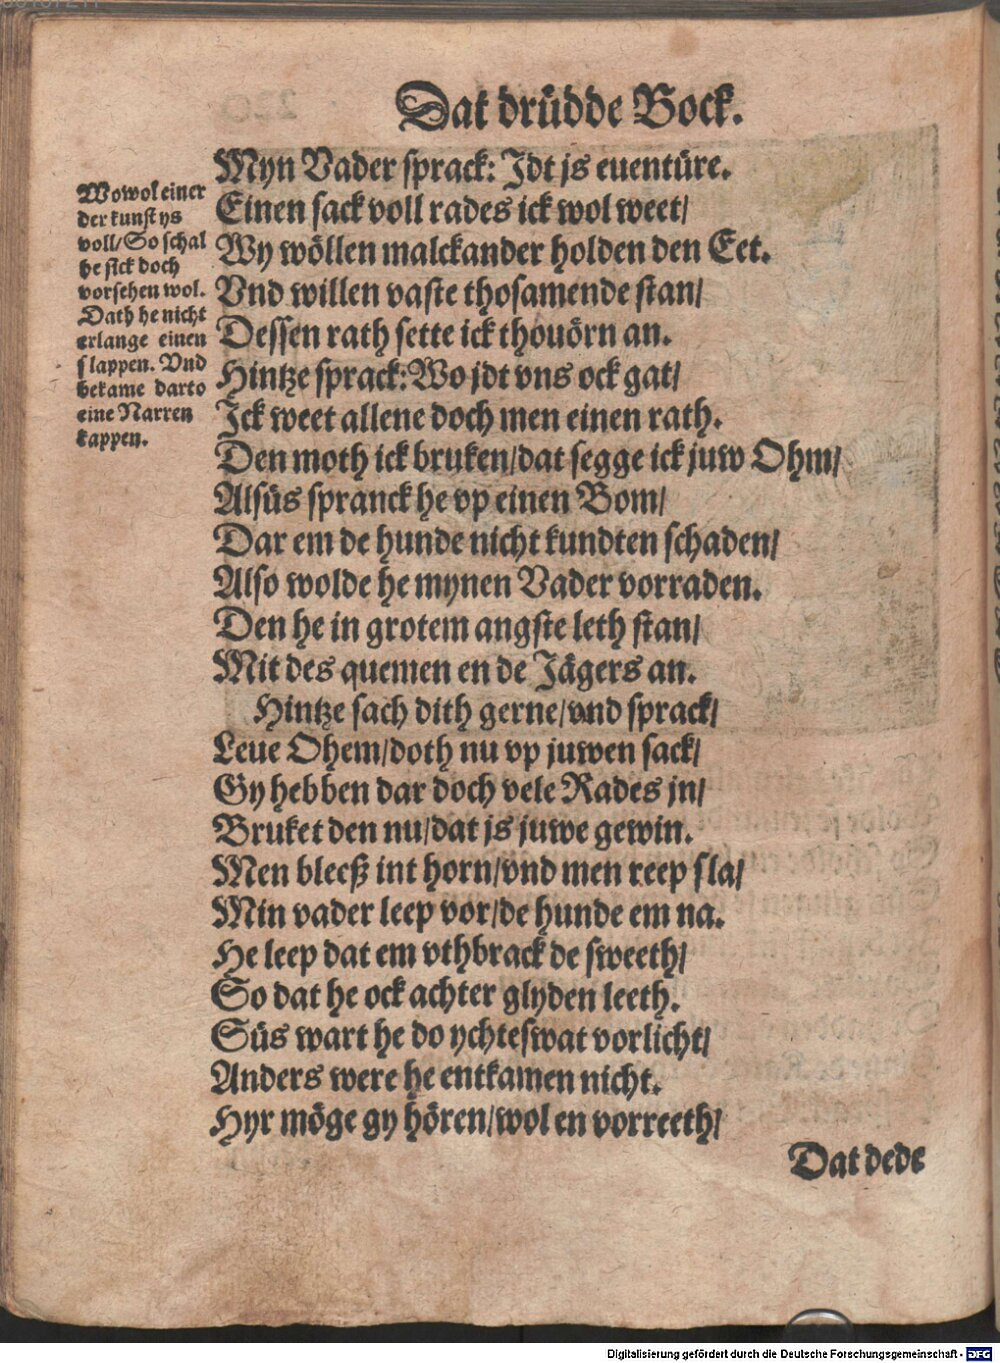 Dat drüdde Bock.
Wowol einer
der kunst ys
voll/ So schal
he sick doch
vorsehen wol.
Dath he nicht
erlange einen
slappen. Vnd
bekame darto
eine Narren
kappen.
Myn Vader sprack: Jdt js euentüre.
Einen sack voll rades ick wol weet/
Wy wöllen malckander holden den Eet.
Vnd willen vaste thosamende stan/
Dessen rath sette ick thouörn an.
Hintze sprack: Wo jdt vns ock gat/
Jck weet allene doch men einen rath.
Den moth ick bruken/ dat segge ick juw Ohm/
Alsüs spranck he vp einen Bom/
Dar em de hunde nicht kundten schaden/
Also wolde he mynen Vader vorraden.
Den he in grotem angste leth stan/
Mit des quemen en de Jägers an.
Hintze sach dith gerne/ vnd sprack/
Leue Ohem/ doth nu vp juwen sack/
Gy hebben dar doch vele Rades jn/
Bruket den nu/ dat js juwe gewin.
Men bleeß int horn/ vnd men reep sla/
Min vader leep vor/ de hunde em na.
He leep dat em vthbrack de sweeth/
So dat he ock achter glyden leeth.
Süs wart he do ychteswat vorlicht/
Anders were he entkamen nicht.
Hyr möge gy hören/ wol en vorreeth/
Dat dede
Digitalisierung gefördert durch die Deutsche Forschungsgemeinschaft - DFG